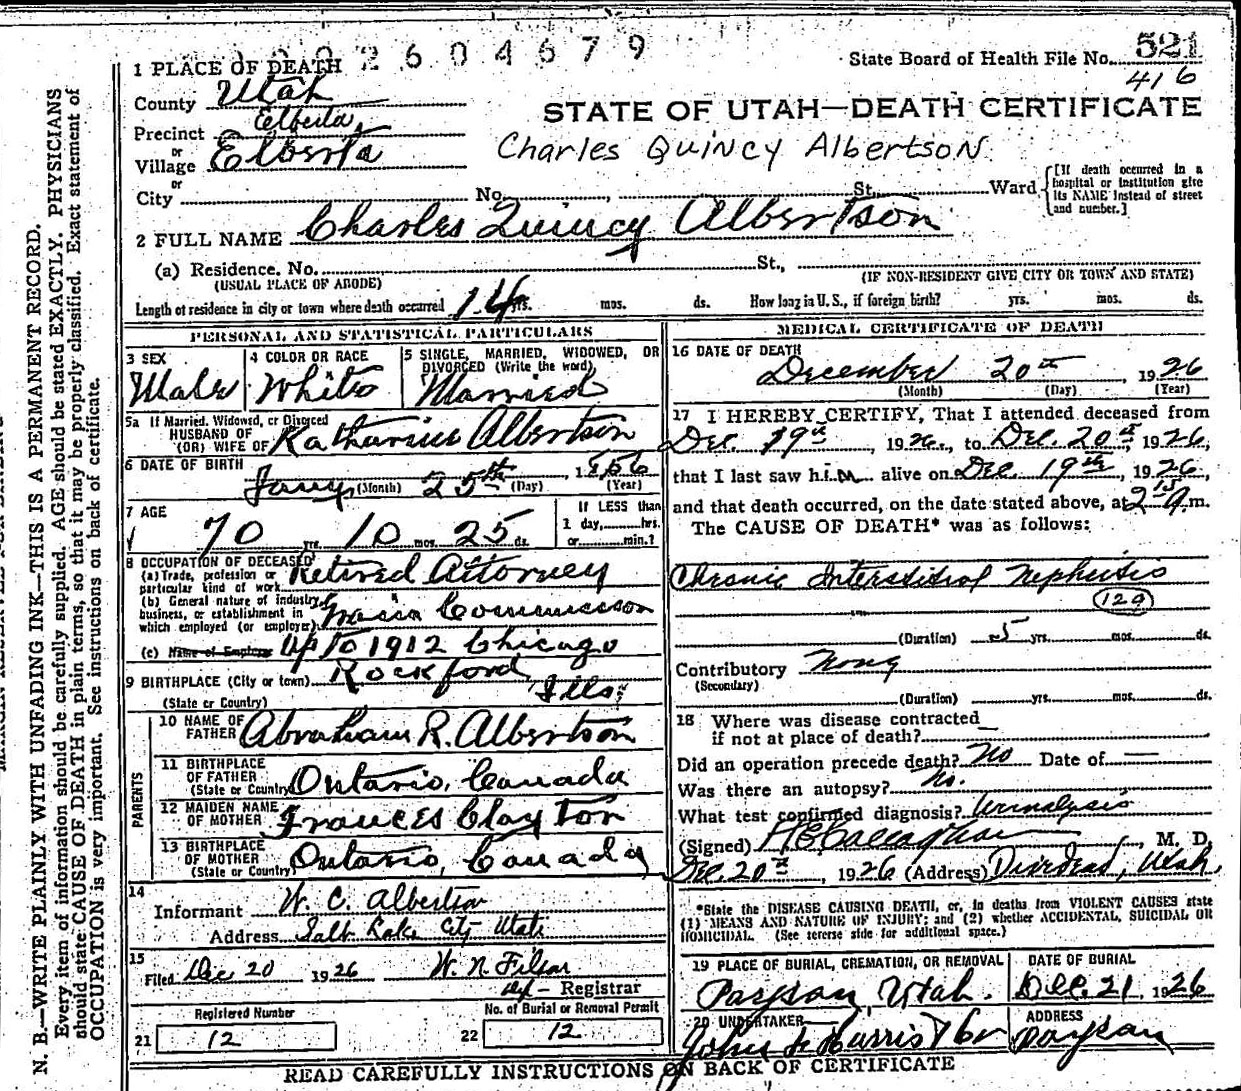 2604679
State Board of Health File No. 521
416
1 PLACE OF DEATH
County Utah
STATE OF UTAH—DEATH CERTIFICATE
Precinct Elberta
or
Village Elberta
Charles Quincy Albertson
or
City No. , St. Ward
[If death occurred in a hospital or institution give its NAME instead of street and number.]
2 FULL NAME Charles Quincy Albertson
(a) Residence. No. St.,
(USUAL PLACE OF ABODE) (IF NON-RESIDENT GIVE CITY OR TOWN AND STATE)
Length of residence in city or town where death occurred 14 yrs. mos. ds. How long in U. S., if foreign birth? yrs. mos. ds.
PERSONAL AND STATISTICAL PARTICULARS
3 SEX Male
4 COLOR OR RACE White
5 SINGLE, MARRIED, WIDOWED, OR DIVORCED (Write the word) Married
5a If Married, Widowed, or Divorced
HUSBAND OF
(OR) WIFE OF Katharine Albertson
6 DATE OF BIRTH Jany 25th 1856
(Month) (Day) (Year)
7 AGE 70 yrs. 10 mos. 25 ds.
If LESS than
1 day, hrs.
or min.?
8 OCCUPATION OF DECEASED
(a) Trade, profession or particular kind of work Retired Attorney
(b) General nature of industry, business, or establishment in which employed (or employer) Grain Commission
(c) Name of Employer up to 1912 Chicago
9 BIRTHPLACE (City or town) Rockford, Ills.
(State or Country)
PARENTS
10 NAME OF FATHER Abraham R. Albertson
11 BIRTHPLACE OF FATHER (State or Country) Ontario, Canada
12 MAIDEN NAME OF MOTHER Frances Clayton
13 BIRTHPLACE OF MOTHER (State or Country) Ontario, Canada
14
Informant W. C. Albertson
Address Salt Lake City Utah
15
Filed Dec 20 1926 W. N.
Registrar
Registered Number
21 12
No. of Burial or Removal Permit
22 12
MEDICAL CERTIFICATE OF DEATH
16 DATE OF DEATH
December 20th, 1926
(Month) (Day) (Year)
17 I HEREBY CERTIFY, That I attended deceased from
Dec. 19th, 1926, to Dec. 20th, 1926,
that I last saw him alive on Dec. 19th, 1926,
and that death occurred, on the date stated above, at 2 15 a.m.
The CAUSE OF DEATH* was as follows:
Chronic Interstitial Nephritis
129
(Duration) 5 yrs. mos. ds.
Contributory None
(Secondary)
(Duration) yrs. mos. ds.
18 Where was disease contracted
if not at place of death?
Did an operation precede death? No Date of
Was there an autopsy? No.
What test confirmed diagnosis? Urinalysis
(Signed) , M. D.
Dec. 20th, 1926 (Address) Dividend, Utah.
*State the DISEASE CAUSING DEATH, or, in deaths from VIOLENT CAUSES state
(1) MEANS AND NATURE OF INJURY; and (2) whether ACCIDENTAL, SUICIDAL OR
HOMICIDAL. (See reverse side for additional space.)
19 PLACE OF BURIAL, CREMATION, OR REMOVAL
Payson, Utah.
DATE OF BURIAL
Dec. 21 1926
20 UNDERTAKER
John Harris
ADDRESS
Payson
READ CAREFULLY INSTRUCTIONS ON BACK OF CERTIFICATE
N. B.—WRITE PLAINLY WITH UNFADING INK—THIS IS A PERMANENT RECORD.
Every item of information should be carefully supplied. AGE should be stated EXACTLY. PHYSICIANS
should state CAUSE OF DEATH in plain terms, so that it may be properly classified. Exact statement of
OCCUPATION is very important. See instructions on back of certificate.